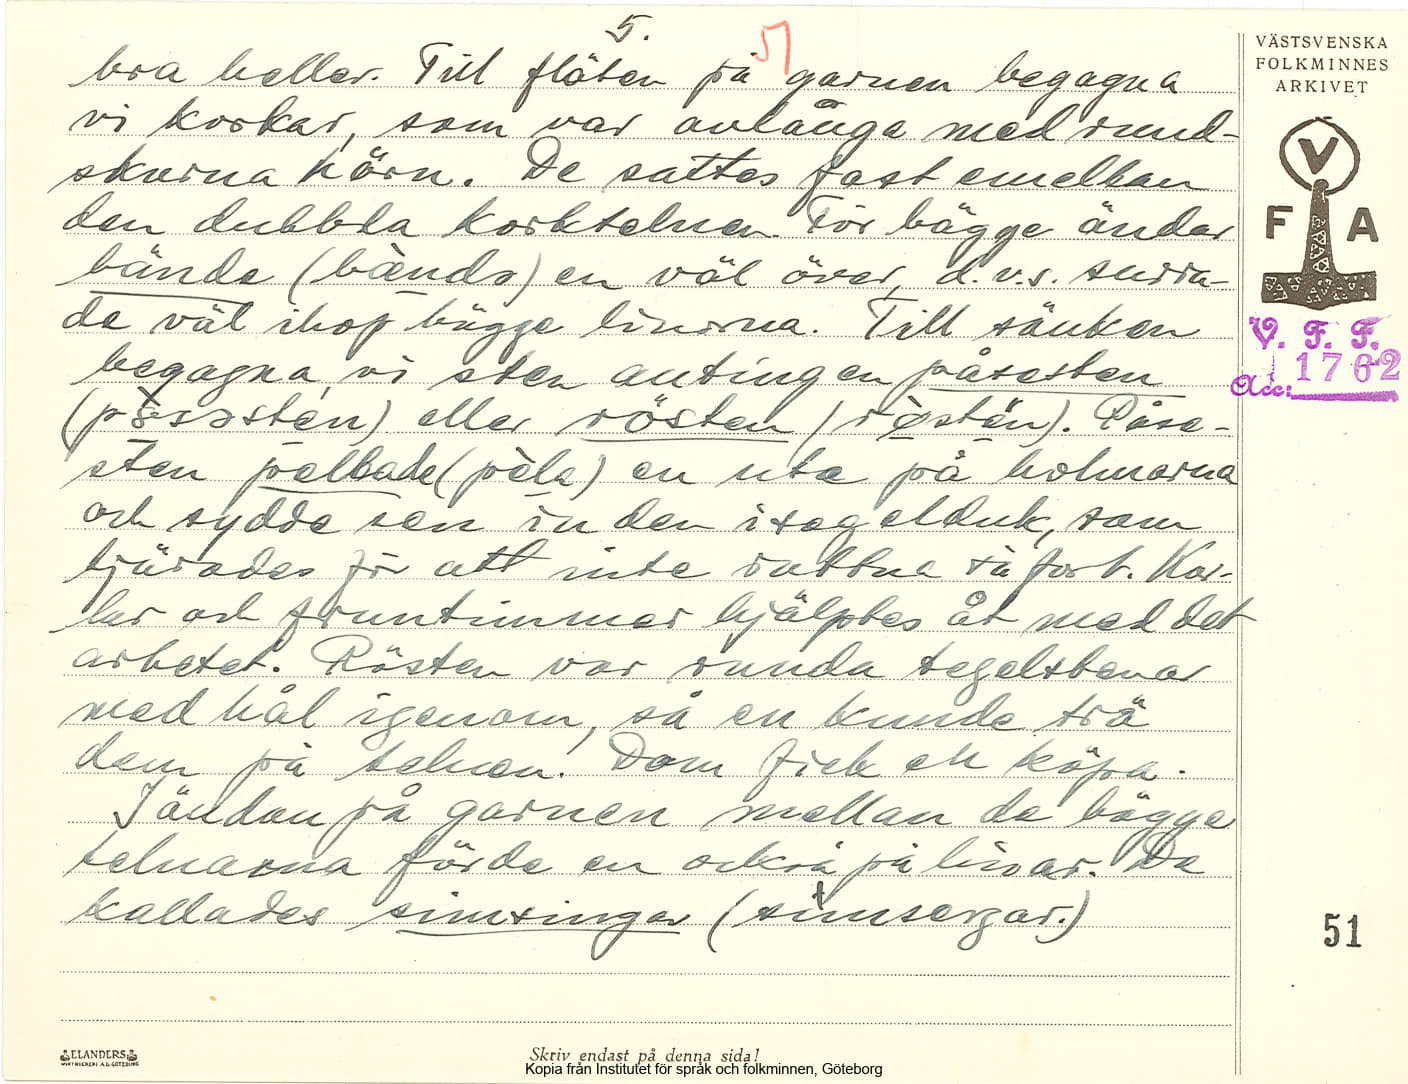 5.
5
VÄSTSVENSKA
FOLKMINNES
ARKIVET
V
F A
V. F. F.
Acc: 1762
bra heller. Till flöten på garnen begagna
vi korkar, som var avlånga med rund-
skurna hörn. De sattes fast emellan
den dubbla korktelnen. För bägge ändar
bände (bànda) en väl över, d.v.s. surra-
de väl ihop bägge linorna. Till sänken
begagna vi sten antingen påsesten
eller rösten (                ). Påse-
sten pellade (pèla) en ute på holmarna
och sydde sen in den i segelduk, som
tjärades för att inte ruttna så fort. Kar-
lar och fruntimmer hjälptes åt med det
arbetet. Rösten var runda tegelstenar
med hål igenom, så en kunde trä
dem på telnen. Dom fick en köpa.
I ändan på garnen mellan de bägge
telnarna förde en också på linor. De
kallades simsingar (simsergar.)
51
ELANDERS
Skriv endast på denna sida!
Kopia från Institutet för språk och folkminnen, Göteborg